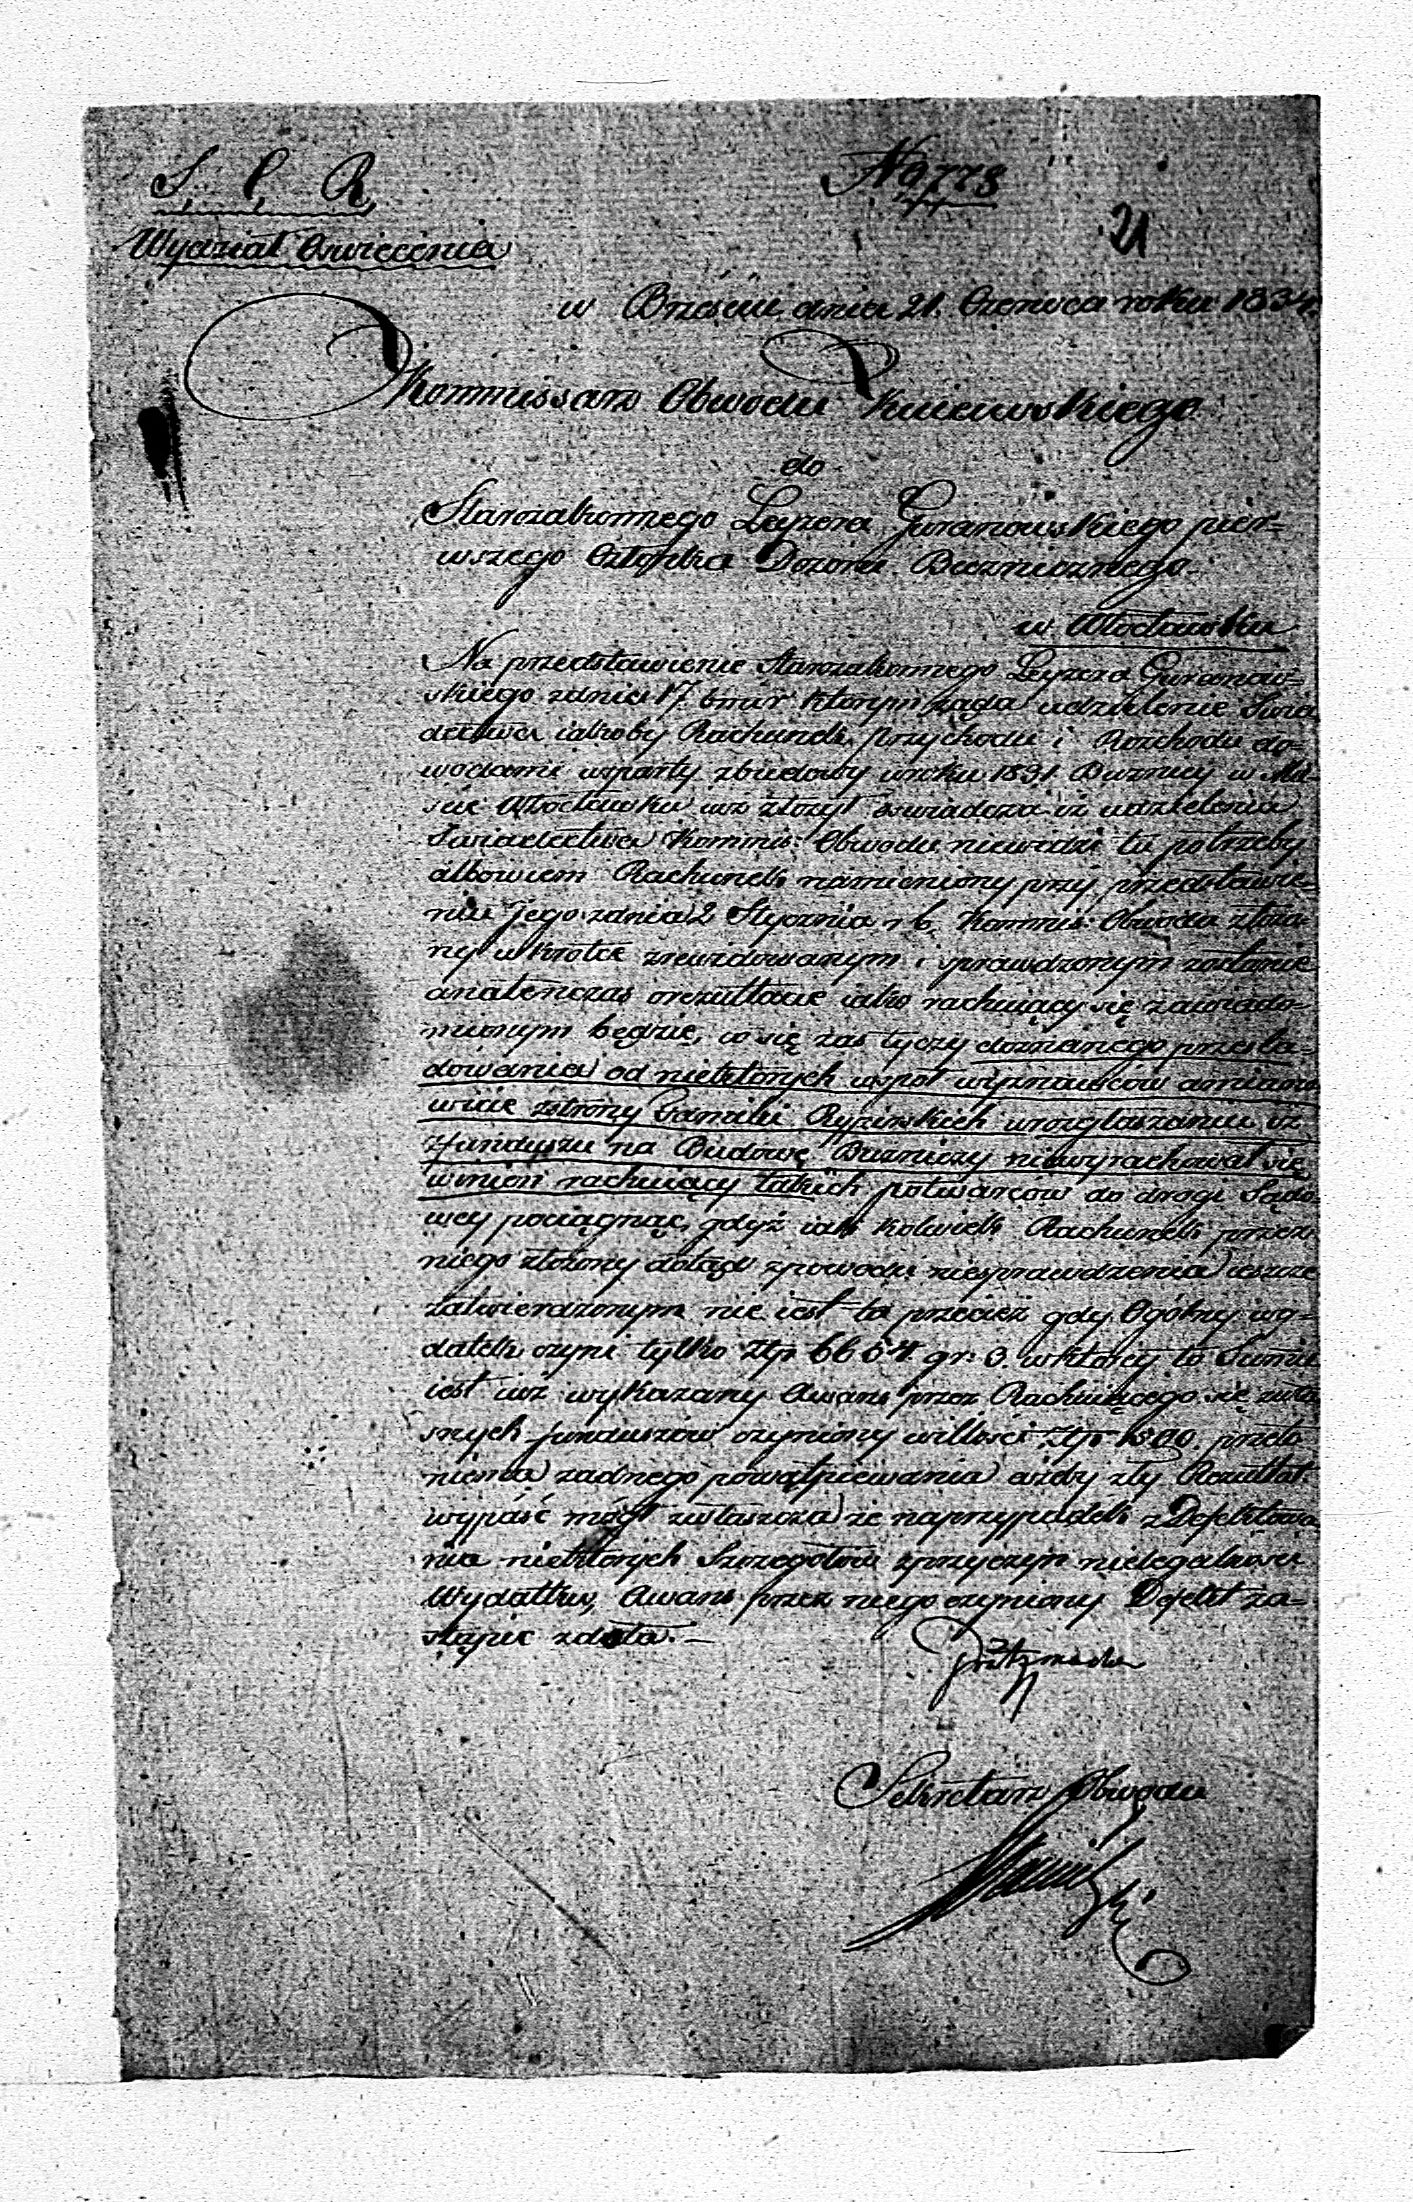 S P R
No 9778
21
Wydział Oswiecenia
w Brześciu dnia 21. Czerwca roku 1834.
Kommissarz Obwodu Kuiawskiego
do
Starozakonnego Leyzera Guranowskiego pier-
wszego Członka Dozoru Buzniczniego.
w Włocławku
Na przedstawienie Starozakonnego Leyzera Guranow-
skiego zdnia 17. b m i r którym żąda udzielenie Swia
dectwa iakoby Rachunek przychodu i Rozchodu do-
wodami wsparty zbudowy wroku 1831 Buznicy w Mie-
ście Włocławku iuż złożył oswiadcza iż udzielenia
Swiadectwa Kommis: Obwodu niewidzi tu potrzeby
albowiem Rachunek namieniony przy przedstawie-
niu jego zdnia 2 Stycznia r b. Kommis: Obwodu złożo-
ny wkrótce zrewidowanym i sprawdzonym zostanie
anatenczas orezultacie iako rachuiący się zawiado-
mionym będzie, co się zas tyczy doznanego prześla-
dowania od niektórych współ wyznawców amiano
wicie zstrony Familii Ryzinskich wrozgłaszaniu iż
zfunduszu na Budowę Buzniczy niewyrachował się
winien rachuiący takich potwarców do drogi Sądo-
wey pociągnąć, gdyż iak kolwiek Rachunek przez
niego złożony dotąd zpowodu niesprawdzenia ieszcze
zatwierdzonym nie iest to przecież gdy Ogólny wy-
datek czyni tylko Złp 6654 gr: 3. wktórey to Summie
iest iuż wykazany Awans przez Rachuiącego się zwła
snych funduszów czyniony wilości Złp 1500. przeto
niema żadnego powątpiewania ażeby zły Rezultat
wypaść mógł zwłaszcza że naprzypadek zDefektowa
nia niektórych Szczegółów zprzyczyn nielegalnosci
Wydatku, Awans przez niego czyniony Defekt za-
stąpic zdoła.—
Sekretarz Obwodu